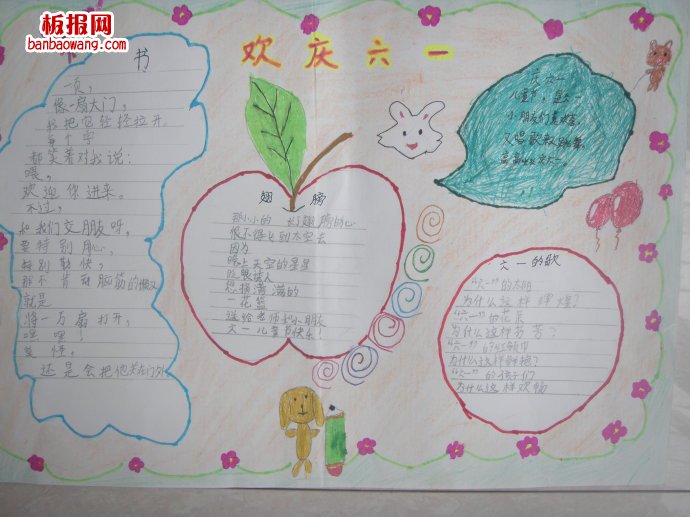 板报网
banbaowang.com
欢庆六一
书
一页，
像一扇大门，
我把它轻轻拉开，
每个字
都笑着对我说：
嘿，
欢迎你进来。
不过，
和我们交朋友呀，
要特别用心，
特别勤快，
那不肯动脑筋的懒汉
就是
将一万扇打开，
嘿嘿！
还是会把他关在门外
翅膀
那小小的 长翅膀的心
恨不得飞到太空去
因为
晚上天空的星星
想摘满满的
一花篮
送给老师和小朋友
六一儿童节快乐！
庆六一
儿童节，
小朋友们
又唱歌来又跳舞，
高高兴兴庆六一。
六一的歌
“六一”的太阳
为什么这样辉煌？
“六一”的花瓦
为什么这样芬芳？
为什么这样鲜艳？
“六一”的孩子们
为什么这样欢畅